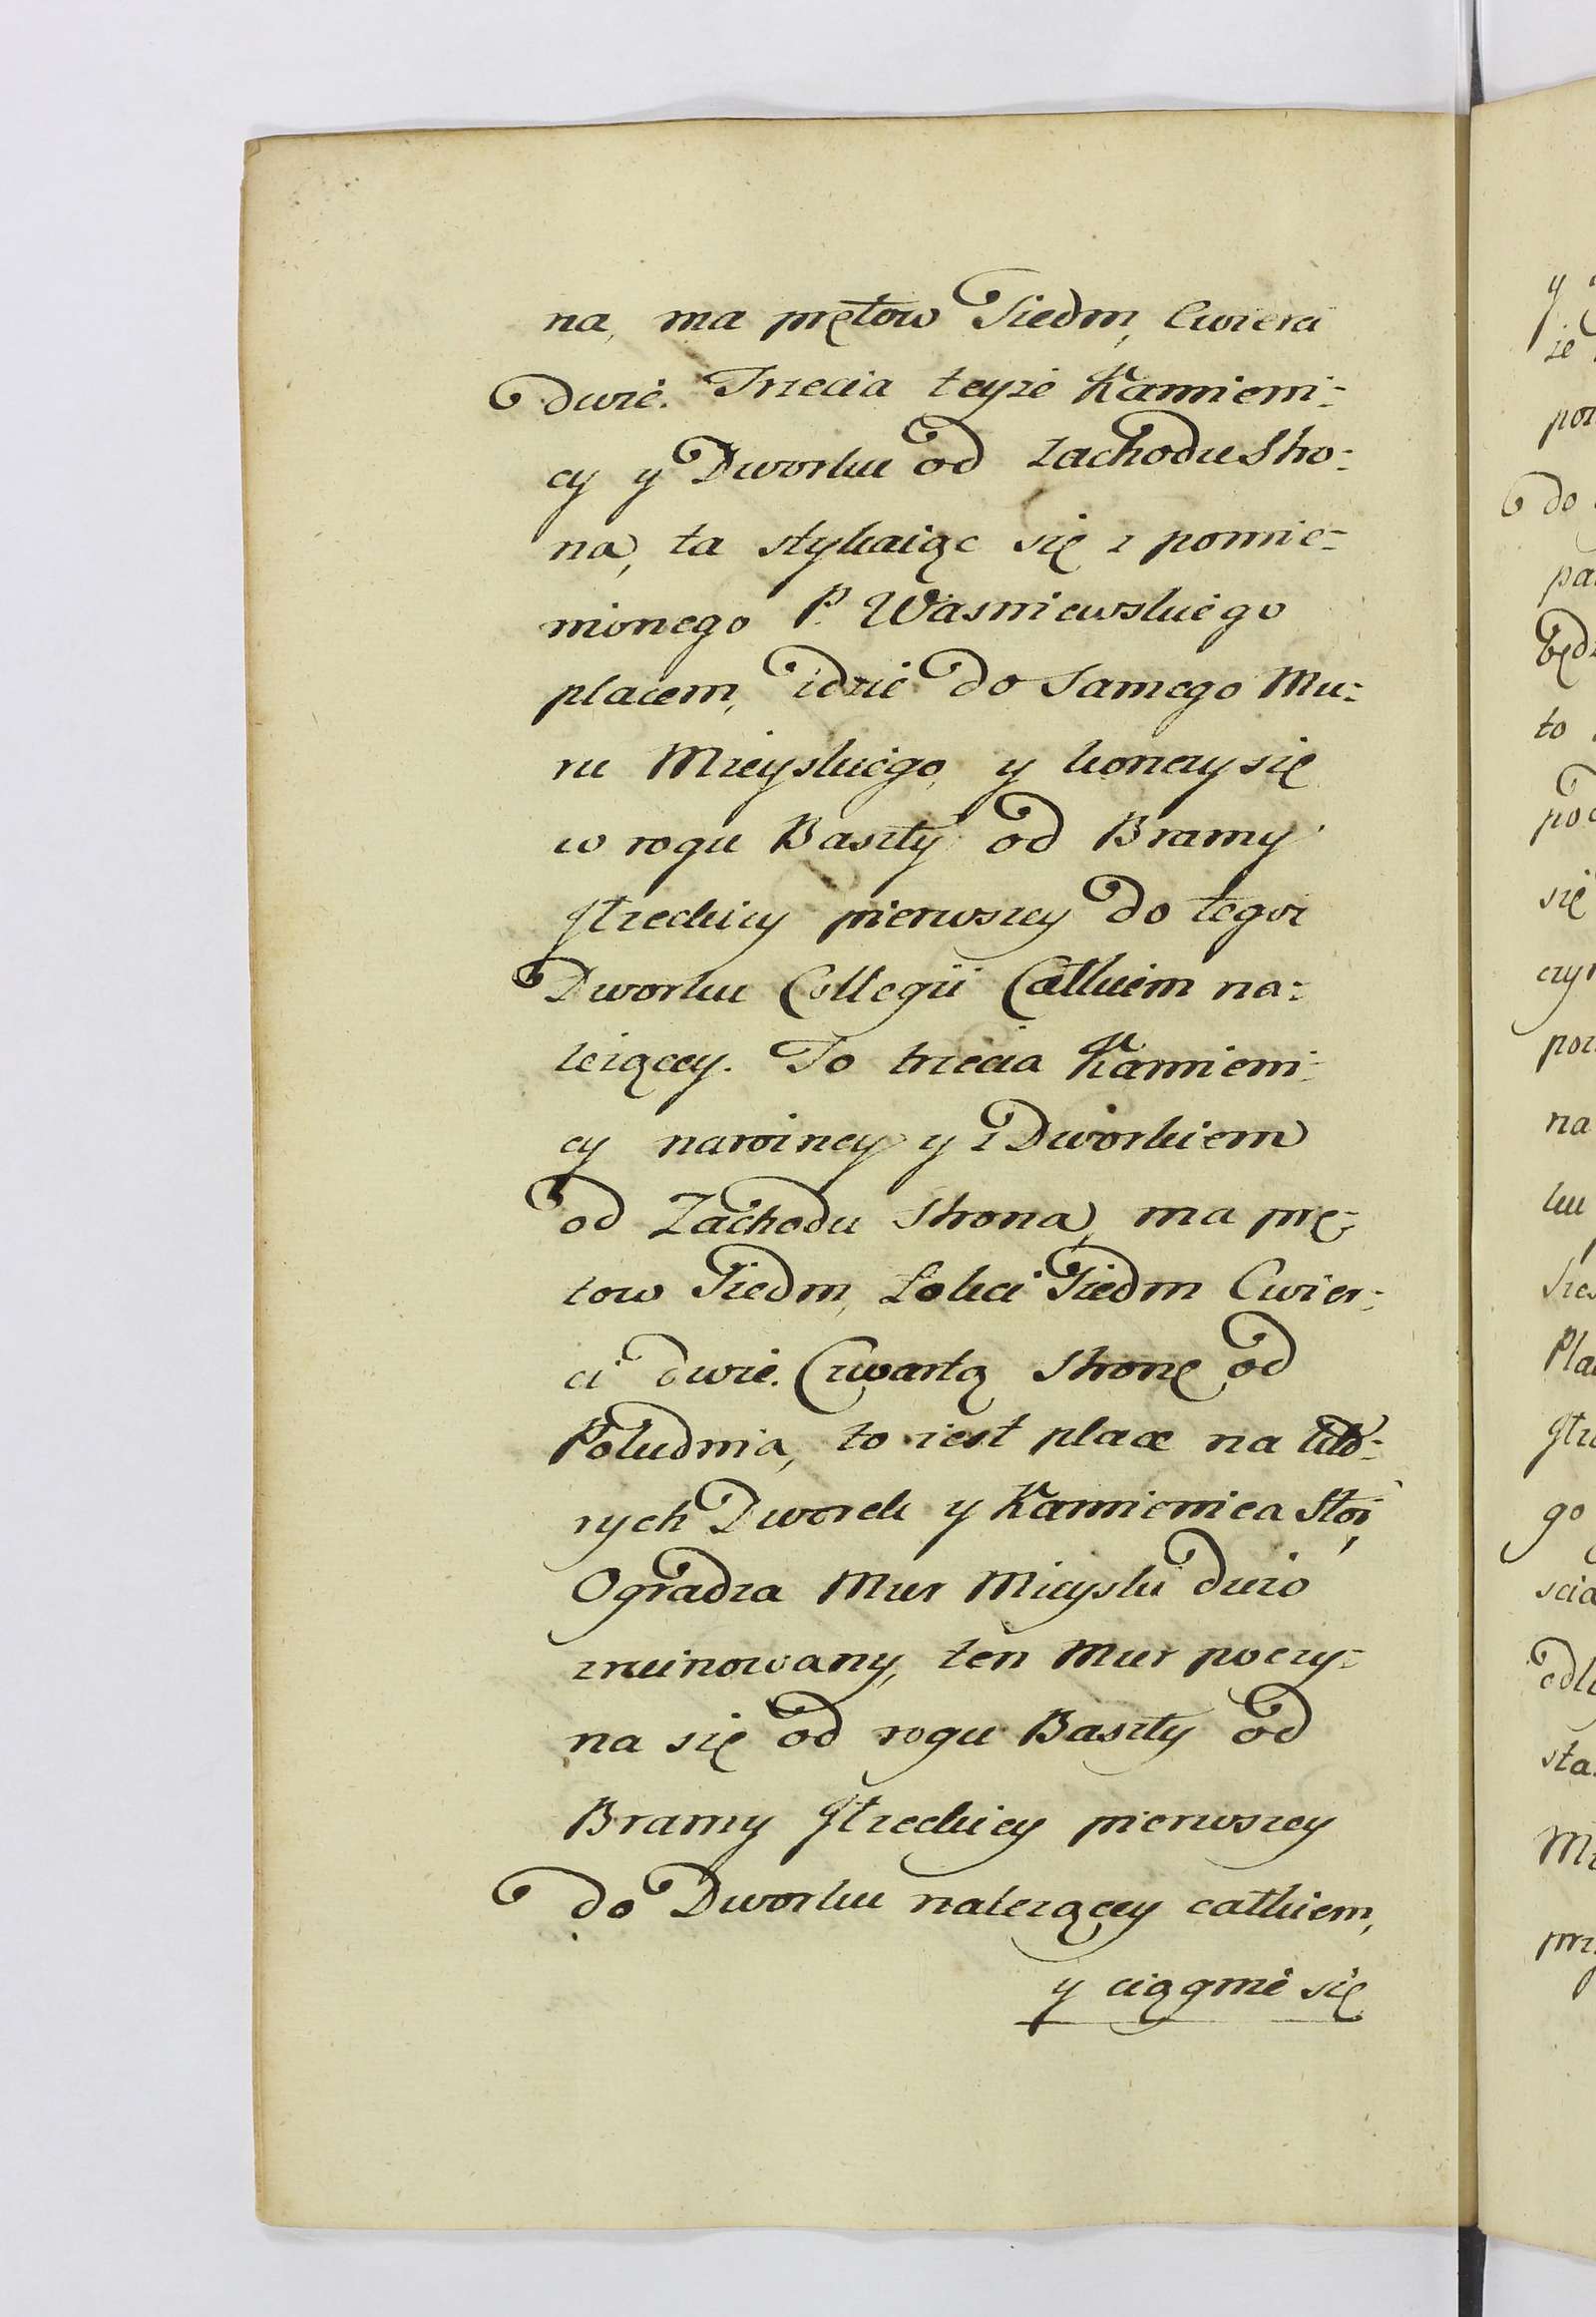 na, ma prętow Siedm, Cwierci
dwie. Trzecia teyże Kamieni:
cy y Dworku od zachodu stro:
na, ta stykaiąc się z pomie:
nionego P. Wasniewskiego
placem, idzie do Samego Mu:
ru Mieyskiego, y konczy się
w rogu Baszty od Bramy
Grzeckiey pierwszey do tegoz
Dworku Collegii Całkiem na:
leżącey. To trzecia Kamieni:
cy narożney y z Dworkiem
od Zachodu strona, ma prę:
tow Siedm, Łokci Siedm Cwier:
ci dwie. Czwartą stronę od
Południa, to iest place na kto:
rych Dworek y Kamienica stoi,
Ogradza Mur Mieyski duzo
zruinowany, ten Mur poczy:
na się od rogu Baszty od
Bramy Grzeckiey pierwszey
do Dworku nalezącey całkiem,
y ciągnie się
y
ze
por
do
pa
będ
to
się
czy
poz
na
ku
Pla
go
scia
sta
prz